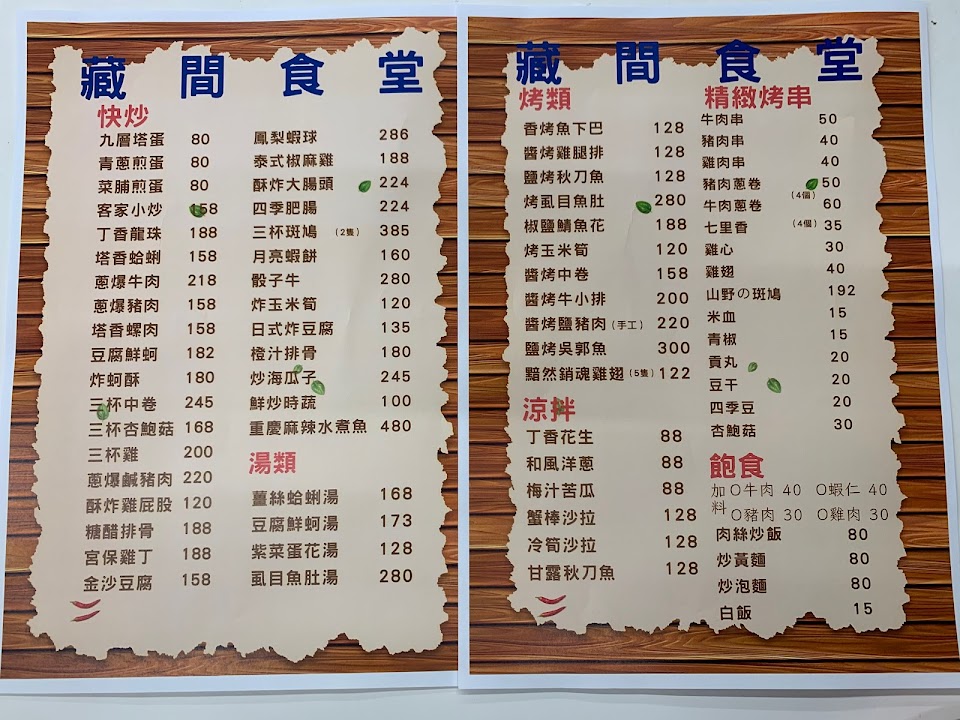 藏間食堂
快炒
九層塔蛋 80
青蔥煎蛋 80
菜脯煎蛋 80
客家小炒 158
丁香龍珠 188
塔香蛤蜊 158
蔥爆牛肉 218
蔥爆豬肉 158
塔香螺肉 158
豆腐鮮蚵 182
炸蚵酥 180
三杯中卷 245
三杯杏鮑菇 168
三杯雞 200
蔥爆鹹豬肉 220
酥炸雞屁股 120
糖醋排骨 188
宮保雞丁 188
金沙豆腐 158
鳳梨蝦球 286
泰式椒麻雞 188
酥炸大腸頭 224
四季肥腸 224
三杯斑鳩 (2隻) 385
月亮蝦餅 160
骰子牛 280
炸玉米筍 120
日式炸豆腐 135
橙汁排骨 180
炒海瓜子 245
鮮炒時蔬 100
重慶麻辣水煮魚 480
湯類
薑絲蛤蜊湯 168
豆腐鮮蚵湯 173
紫菜蛋花湯 128
虱目魚肚湯 280
藏間食堂
烤類
香烤魚下巴 128
醬烤雞腿排 128
鹽烤秋刀魚 128
烤虱目魚肚 280
椒鹽鯖魚花 188
烤玉米筍 120
醬烤中卷 158
醬烤牛小排 200
醬烤鹽豬肉(手工) 220
鹽烤吳郭魚 300
黯然銷魂雞翅(5隻) 122
涼拌
丁香花生 88
和風洋蔥 88
梅汁苦瓜 88
蟹棒沙拉 128
冷筍沙拉 128
甘露秋刀魚 128
精緻烤串
牛肉串 50
豬肉串 40
雞肉串 40
豬肉蔥卷 50
牛肉蔥卷 (4個) 60
七里香 (4個) 35
雞心 30
雞翅 40
山野の斑鳩 192
米血 15
青椒 15
貢丸 20
豆干 20
四季豆 20
杏鮑菇 30
飽食
加料 O牛肉 40 O蝦仁 40
O豬肉 30 O雞肉 30
肉絲炒飯 80
炒黃麵 80
炒泡麵 80
白飯 15